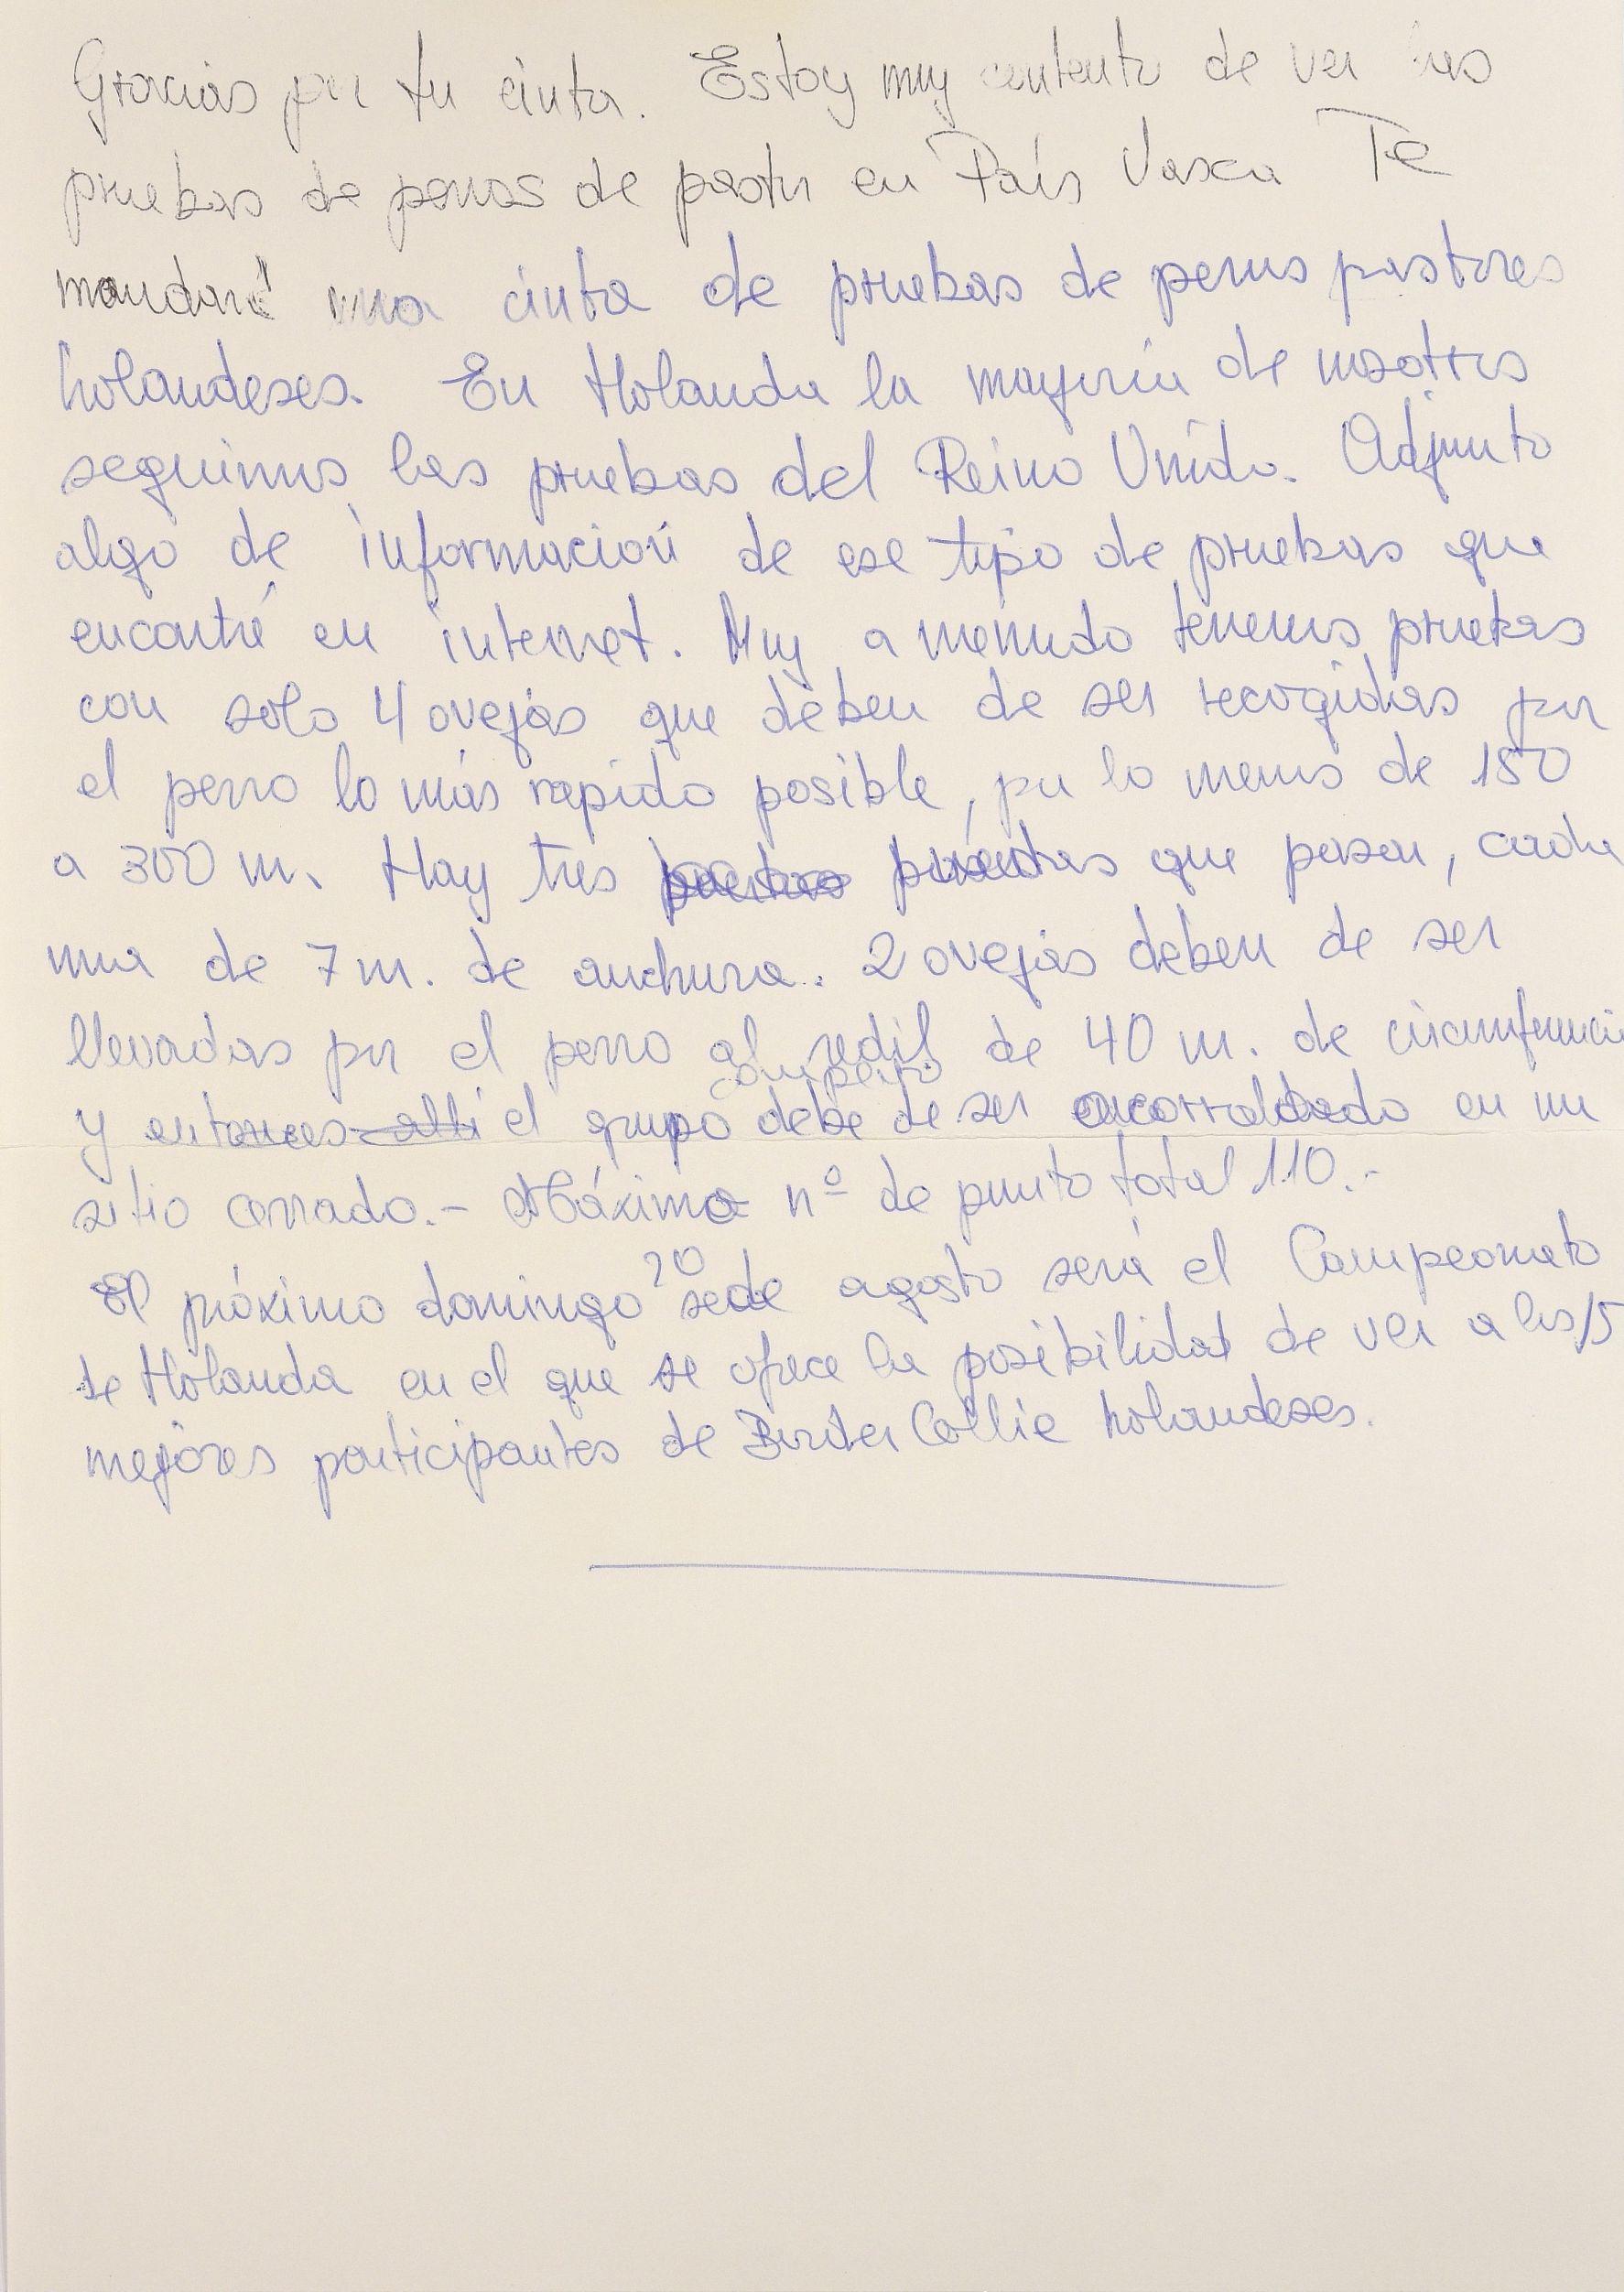 Gracias por tu cinta. Estoy muy contento de ver las
pruebas de perros de pastor en País Vasco Te
mandaré una cinta de pruebas de perros pastores
holandeses. En Holanda la mayoría de nosotros
seguimos las pruebas del Reino Unido. Adjunto
algo de información de ese tipo de pruebas que
encontré en internet. Muy a menudo tenemos pruebas
con solo 4 ovejas que deben de ser recogidas por
el perro lo más rapido posible, por lo menos de 150
a 300 m. Hay tres puertas que pasar, cada
una de 7 m. de anchura. 2 ovejas deben de ser
llevadas por el perro al redil de 40 m. de circunferencia
completo
y entonces allí el grupo debe de ser acorralado en un
sitio cerrado.- Máximo nº de punto total 110.-
El próximo domingo 20 de agosto será el Campeonato
de Holanda en el que se ofrece la posibilidad de ver a los 15
mejores participantes de Border Collie holandeses.